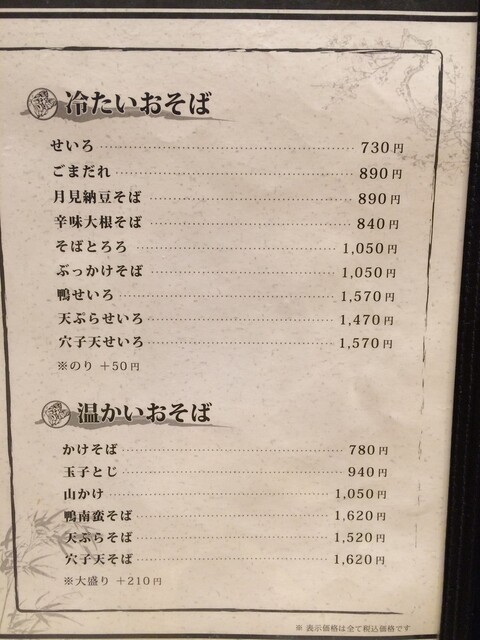 冷たいおそば
せいろ 730円
ごまだれ 890円
月見納豆そば 890円
辛味大根そば 840円
そばとろろ 1,050円
ぶっかけそば 1,050円
鴨せいろ 1,570円
天ぷらせいろ 1,470円
穴子天せいろ 1,570円
※のり +50円
温かいおそば
かけそば 780円
玉子とじ 940円
山かけ 1,050円
鴨南蛮そば 1,620円
天ぷらそば 1,520円
穴子天そば 1,620円
※大盛り +210円
※ 表示価格は全て税込価格です